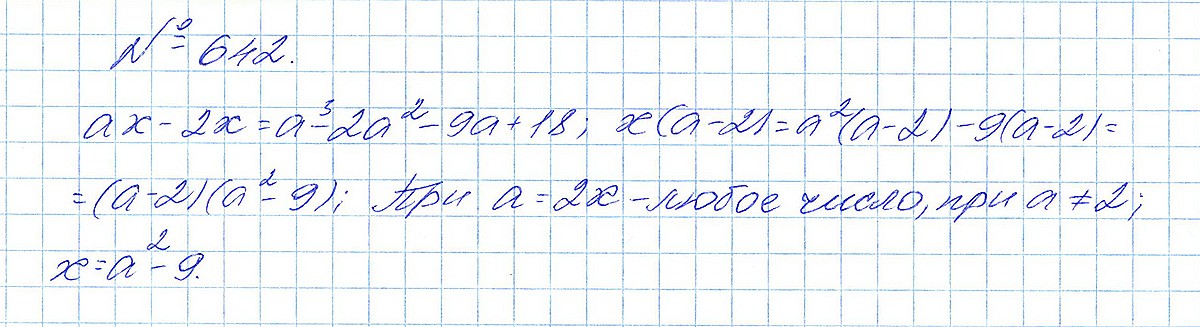 № 642.
ax - 2x = a³ - 2a² - 9a + 18; x(a-2) = a²(a-2) - 9(a-2) =
= (a-2)(a² - 9); При a = 2x - любое число, при a ≠ 2;
x = a² - 9.